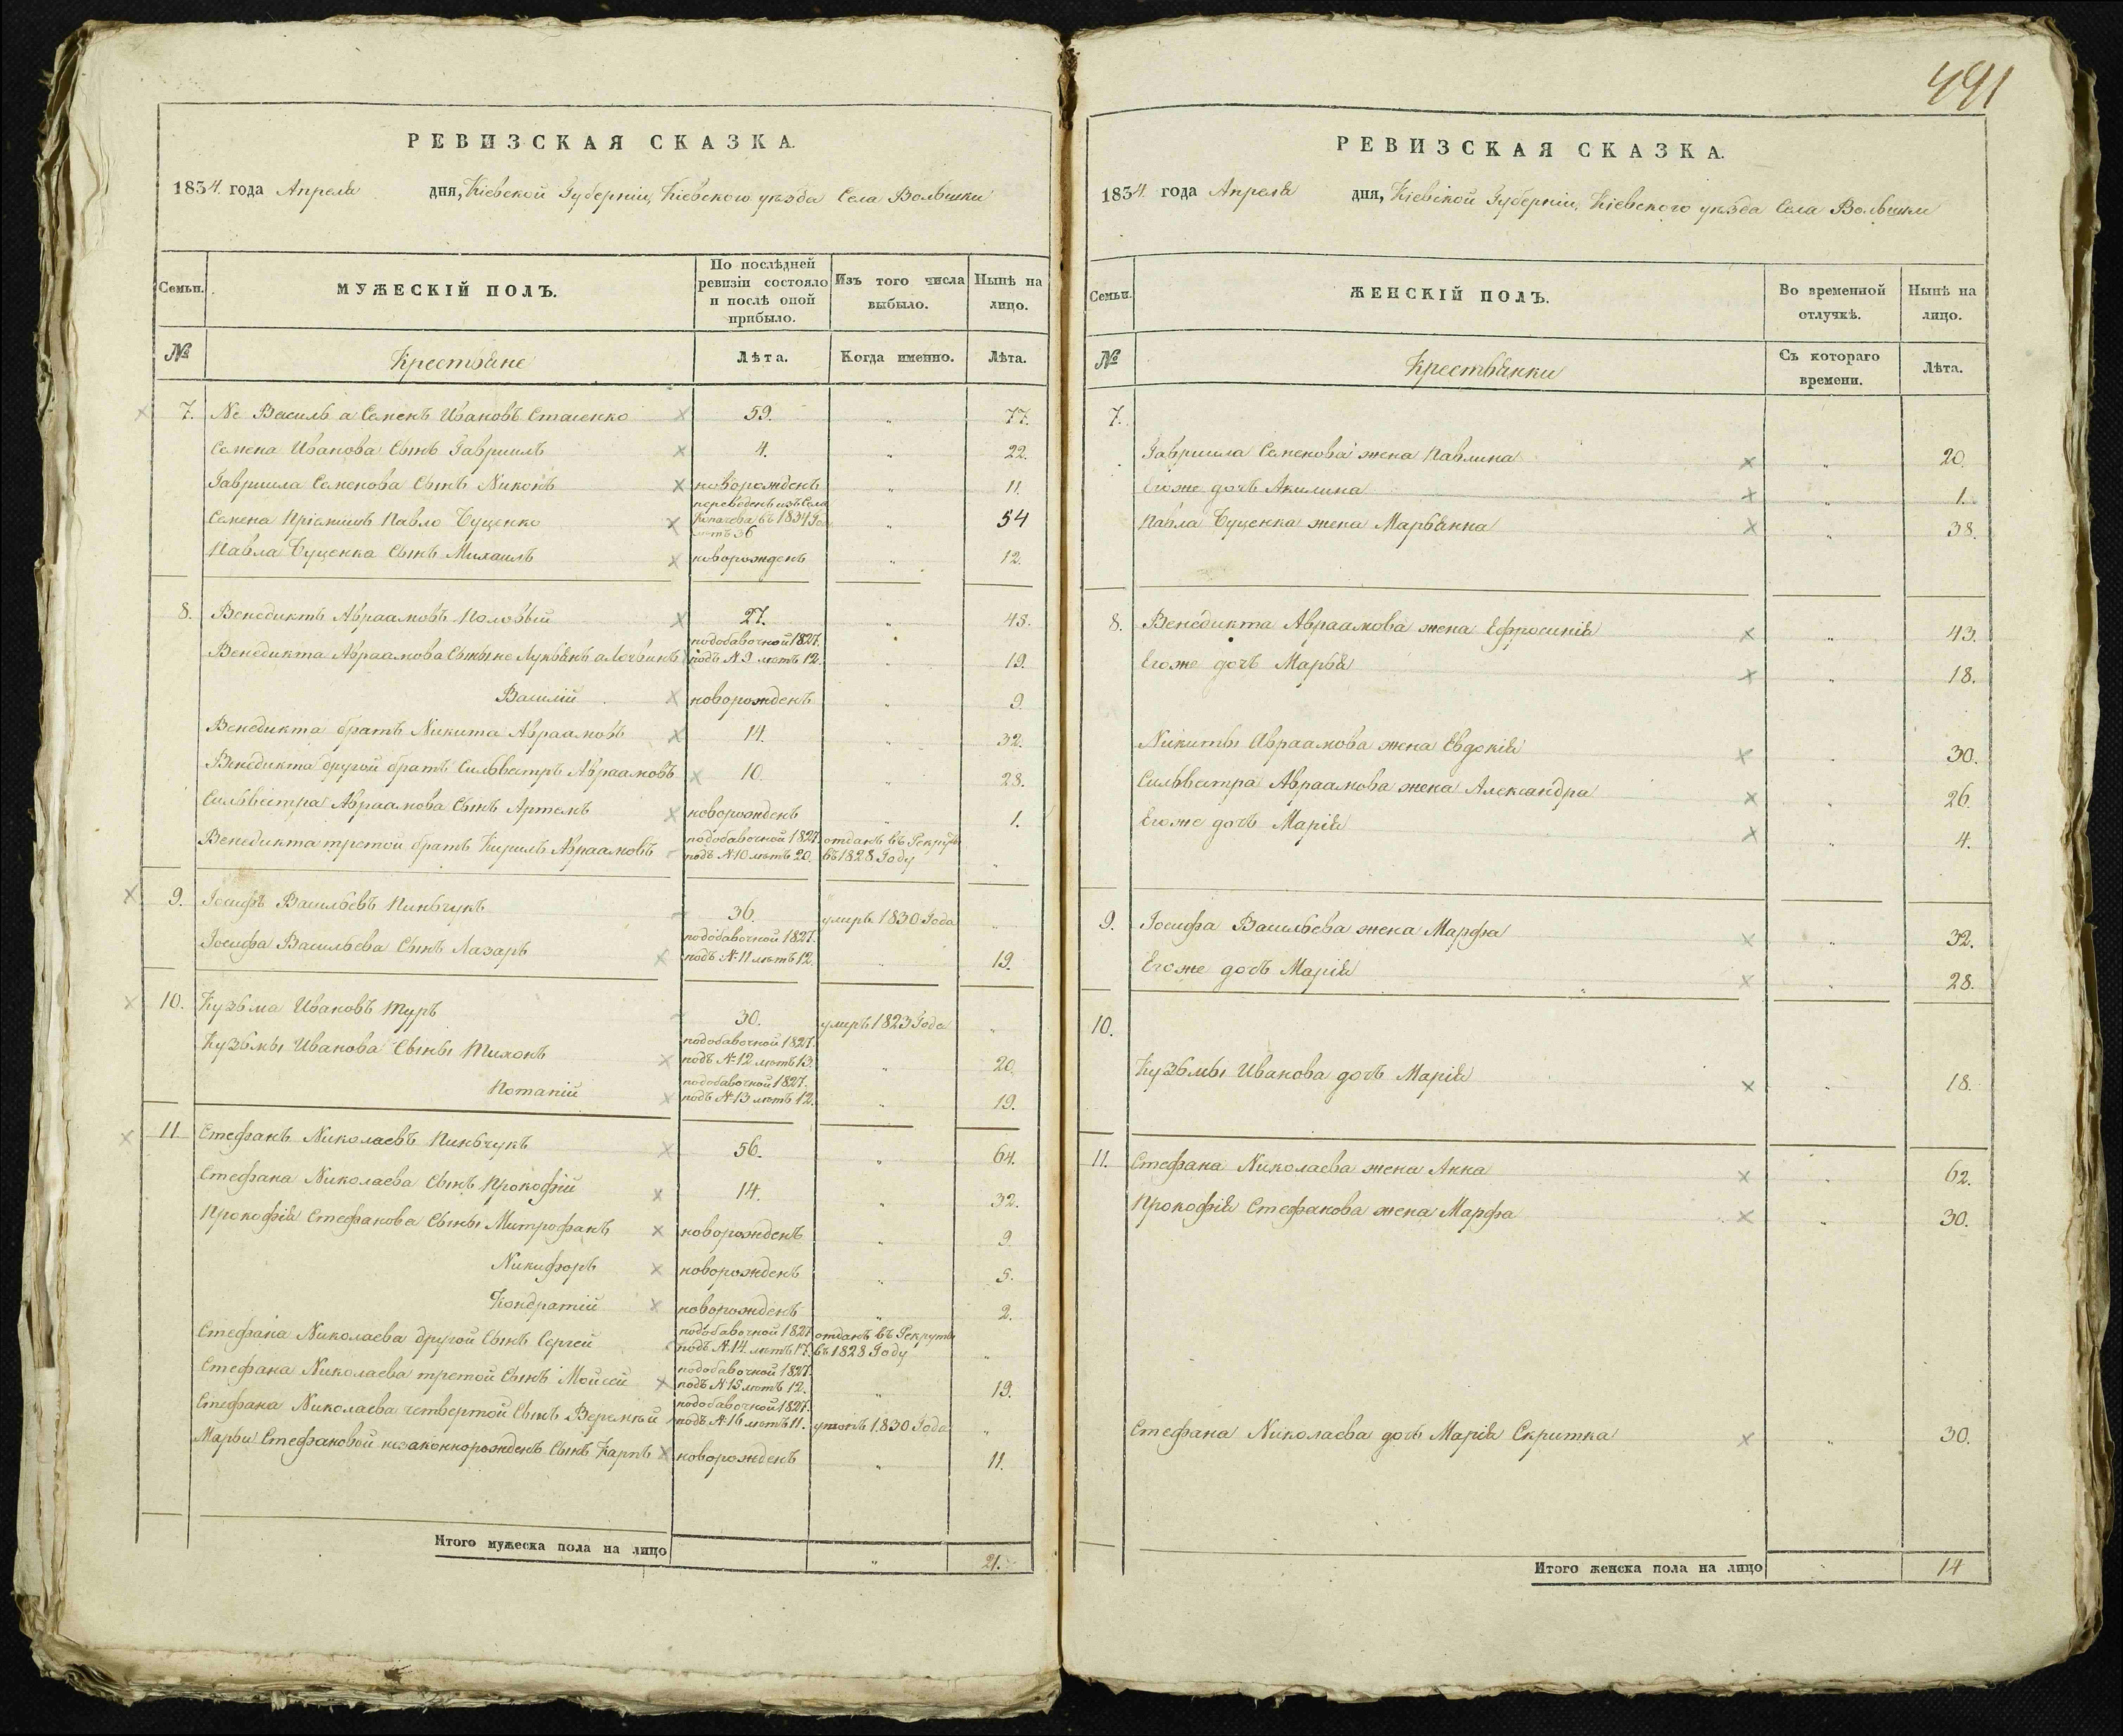 491
РЕВИЗСКАЯ СКАЗКА.
1834. года Апреля дня, Кіевской Губерніи, Кіевского уѣзда Села Вольшки
Семьи.
МУЖЕСКІЙ ПОЛЪ.
По послѣдней ревизіи состояло и послѣ оной прибыло.
Изъ того числа выбыло.
Нынѣ на лицо.
№
Крестьяне
Лѣта.
Когда именно.
Лѣта.
7. Не Василь а Семенъ Ивановъ Стасенко 59. „ 77.
Семена Иванова Сынъ Гавриилъ 4. „ 22.
Гавриила Семенова Сынъ Никонъ новорожденъ „ 11.
переведенъ изъ Села
Семена Пріймишъ Павло Буценко Копачева въ 1834 Год „ 54
лѣтъ 36
Павла Буценка Сынъ Михаилъ новорожденъ „ 12.
8. Венедиктъ Авраамовъ Половый 27. „ 45.
подобавочной 1827.
Венедикта Авраамова Сыны не Лукьянъ а Логвинъ подъ №9 лѣтъ 12. „ 19.
Василій новорожденъ „ 9.
Венедикта братъ Никита Авраамовъ 14. „ 32.
Венедикта другой братъ Сильвестръ Авраамовъ 10. „ 28.
Сильвестра Авраамова Сынъ Артемъ новорожденъ „ 1.
подобавочной 1827. отданъ въ Рекруты
Венедикта третой братъ Кирилъ Авраамовъ подъ №10 лѣтъ 20. въ 1828 Году „
9. Іосифъ Васильевъ Пинчукъ 36. умеръ 1830 Года „
подобавочной 1827.
Іосифа Васильева Сынъ Лазаръ подъ №11 лѣтъ 12. „ 19.
10. Кузьма Ивановъ Туръ 30. умеръ 1823 Года „
подобавочной 1827.
Кузьмы Иванова Сыны Тихонъ подъ №12 лѣтъ 13. „ 20.
подобавочной 1827.
Потапій подъ №13 лѣтъ 12. „ 19.
11. Стефанъ Николаевъ Пиньчукъ 56. „ 64.
Стефана Николаева Сынъ Прокофій 14. „ 32.
Прокофія Стефанова Сыны Митрофанъ новорожденъ „ 9.
Никифоръ новорожденъ „ 5.
Кондратій новорожденъ „ 2.
подобавочной 1827 отданъ въ Рекруты
Стефана Николаева другой Сынъ Сергей подъ №14 лѣтъ 17. въ 1828 Году „
подобавочной 1827.
Стефана Николаева третой Сынъ Мойсей подъ №15 лѣтъ 12. „ 19.
подобавочной 1827.
Стефана Николаева четвертой Сынъ Веремѣй подъ №16 лѣтъ 11. утопъ 1830 Года „
Марьи Стефановой незаконнорожденъ Сынъ Карпъ новорожденъ „ 11.
Итого мужеска пола на лицо „ 21.
РЕВИЗСКАЯ СКАЗКА.
1834. года Апреля дня, Кіевской Губерніи, Кіевского уѣзда Села Вольшки
Семьи.
ЖЕНСКІЙ ПОЛЪ.
Во временной отлучкѣ.
Нынѣ на лицо.
№
Крестьянки
Съ котораго времени.
Лѣта.
7.
Гавриила Семенова жена Павлина „ 20.
Егоже дочъ Акилина „ 1.
Павла Буценка жена Марьянна „ 38.
8. Венедикта Авраамова жена Ефросинія „ 43.
Егоже дочъ Марья „ 18.
Никиты Авраамова жена Евдокія „ 30.
Сильвестра Авраамова жена Александра „ 26.
Егоже дочъ Марія „ 4.
9. Іосифа Васильева жена Марфа „ 32.
Егоже дочъ Марія „ 28.
10.
Кузьмы Иванова дочъ Марія „ 18.
11. Стефана Николаева жена Анна „ 62.
Прокофія Стефанова жена Марфа „ 30.
Стефана Николаева дочъ Марія Скритка „ 30.
Итого женска пола на лицо „ 14